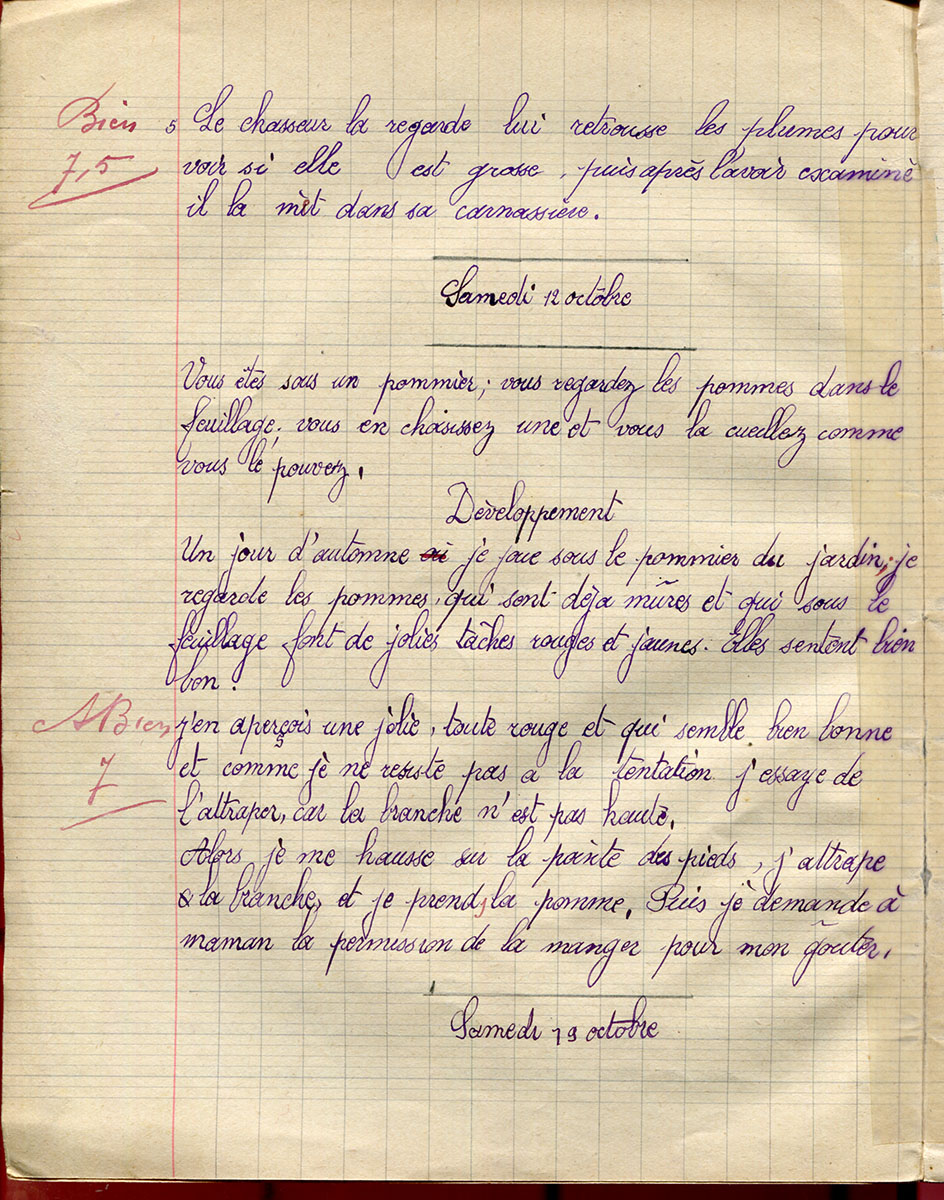 Bien 5 Le chasseur la regarde lui retrousse les plumes pour
7,5 voir si elle est grosse, puis après l'avoir examiné
il la mèt dans sa carnassière.
Samedi 12 octobre
Vous êtes sous un pommier; vous regardez les pommes dans le
feuillage; vous en choisissez une et vous la cueillez comme
vous le pouvez.
Développement
Un jour d'automne je joue sous le pommier du jardin; je
regarde les pommes, qui sont déja mûres et qui sous le
feuillage font de jolies tâches rouges et jaunes. Elles sentent bien
bon.
ABien j'en aperçois une jolie, toute rouge et qui semble bien bonne
7 et comme je ne resiste pas a la tentation j'essaye de
l'attraper, car la branche n'est pas haute.
Alors je me hausse sur la pointe des pieds, j'attrape
la branche, et je prends la pomme. Puis je demande à
maman la permission de la manger pour mon goûter.
Samedi 19 octobre